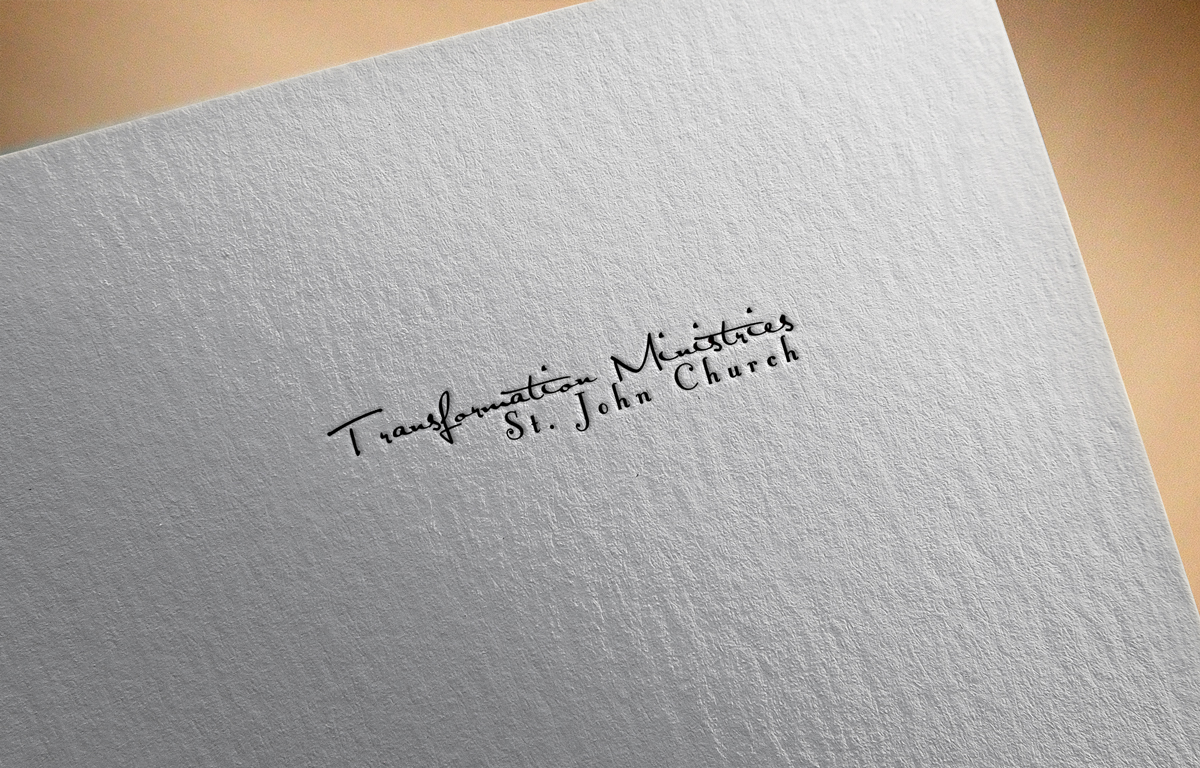 Transformation Ministries
St. John Church